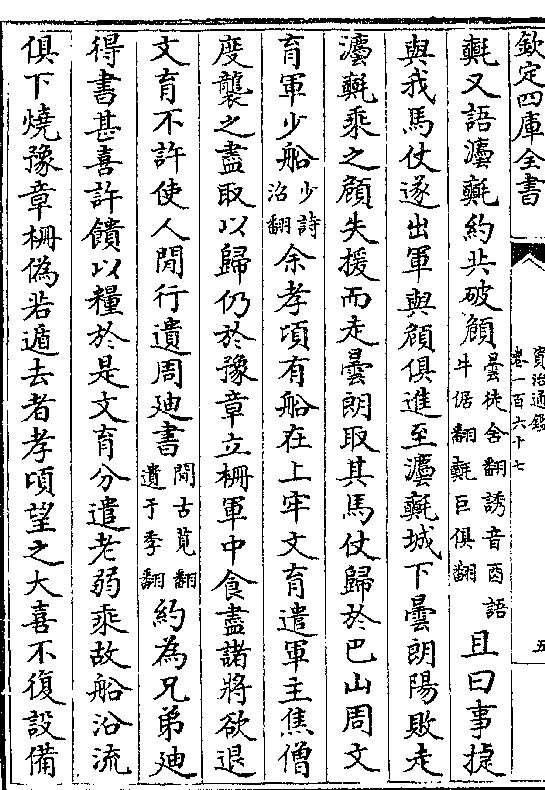 欽定四庫全書
資治通鑑
卷一百六十七
五
㲘又語灋㲘約共破頠曇徒含翻誘音酉語牛倨翻㲘巨俱翻且曰事捷
與我馬仗遂出軍與頠俱進至灋㲘城下曇朗陽敗走
灋㲘乘之頠失援而走曇朗取其馬仗歸於巴山周文
育軍少船少詩沼翻余孝頃有船在上牢文育遣軍主焦僧
度襲之盡取以歸仍於豫章立柵軍中食盡諸將欲退
文育不許使人閒行遺周迪書閒古莧翻遺于季翻約為兄弟迪
得書甚喜許饋以糧於是文育分遣老弱乘故船沿流
俱下燒豫章柵偽若遁去者孝頃望之大喜不復設備